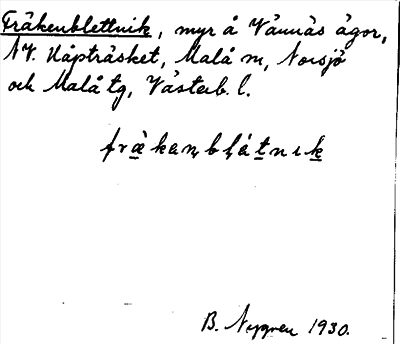 Fräkenblettnik, myr å Vännäs ägor,
NV. Håpträsket, Malå sn, Norsjö
och Malå tg, Västerb. l.
fràkaṇbḷátnık
B. Nygren 1930.